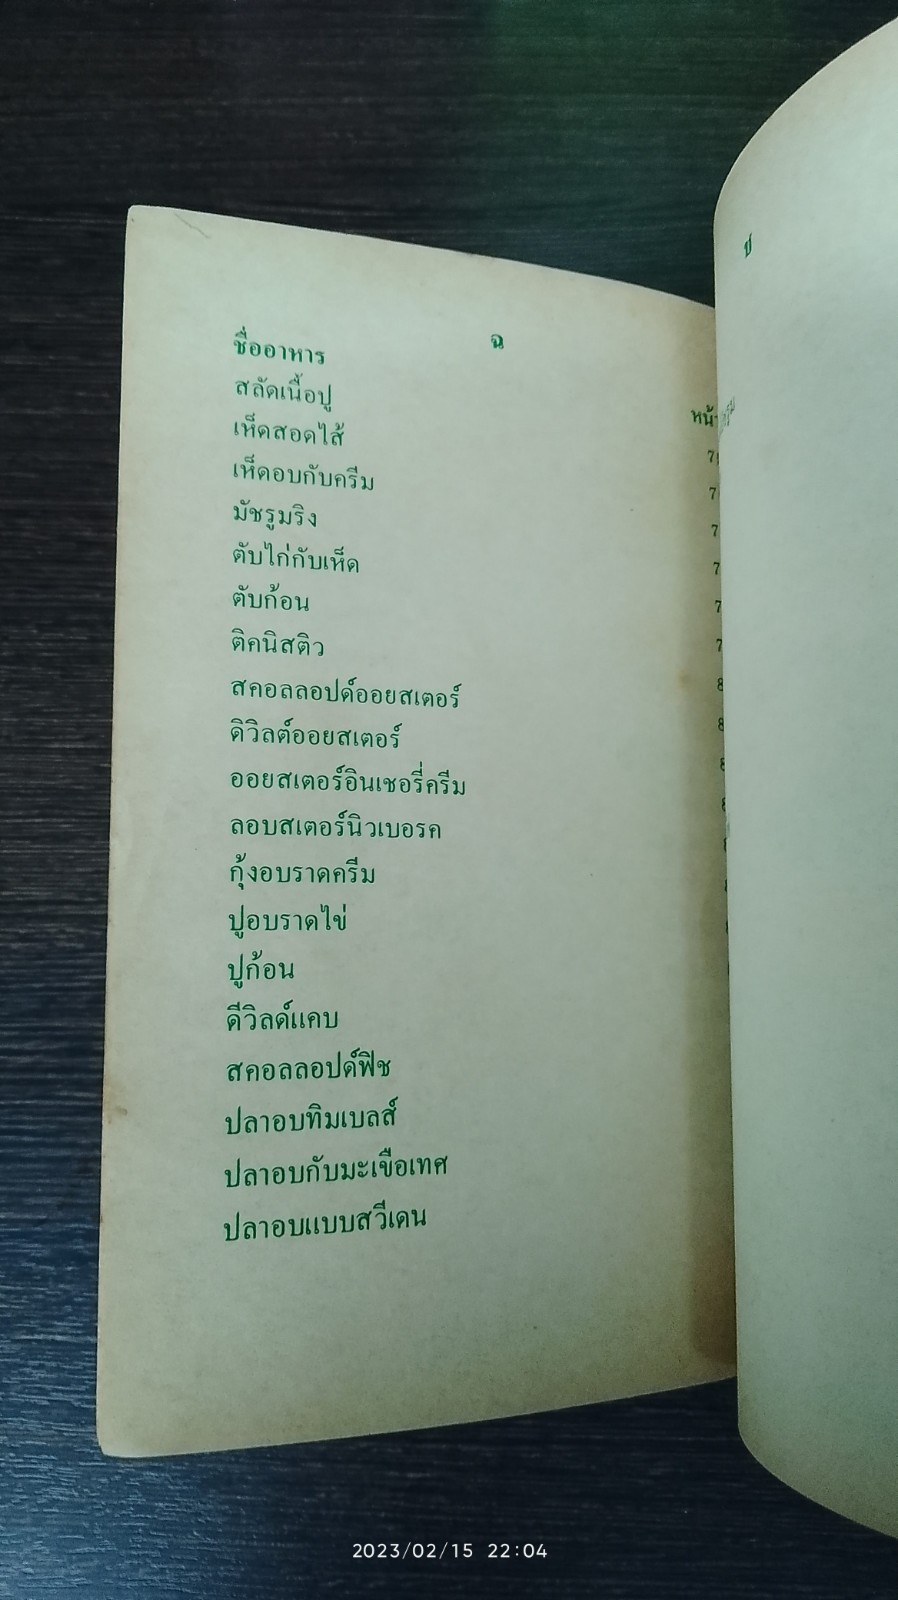 ฉ
ชื่ออาหาร
หน้า
สลัดเนื้อปู
เห็ดสอดไส้
เห็ดอบกับครีม
มัชรูมริง
ตับไก่กับเห็ด
ตับก้อน
ติคนิสติว
สคอลลอปด์ออยสเตอร์
ดิวิลต์ออยสเตอร์
ออยสเตอร์อินเชอรี่ครีม
ลอบสเตอร์นิวเบอรค
กุ้งอบราดครีม
ปูอบราดไข่
ปูก้อน
ดีวิลด์แคบ
สคอลลอปด์ฟิช
ปลาอบทิมเบลส์
ปลาอบกับมะเขือเทศ
ปลาอบแบบสวีเดน
2023/02/15 22:04